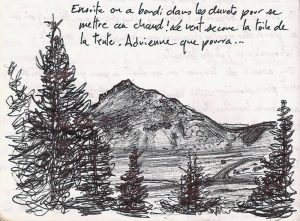 Ensuite on a bondi dans les duvets pour se
mettre au chaud ! Le vent secoue la toile de
la tente. Advienne que pourra...